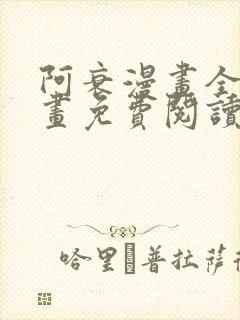 阿衰漫畫全
畫免費閱讀
哈里 普拉薩